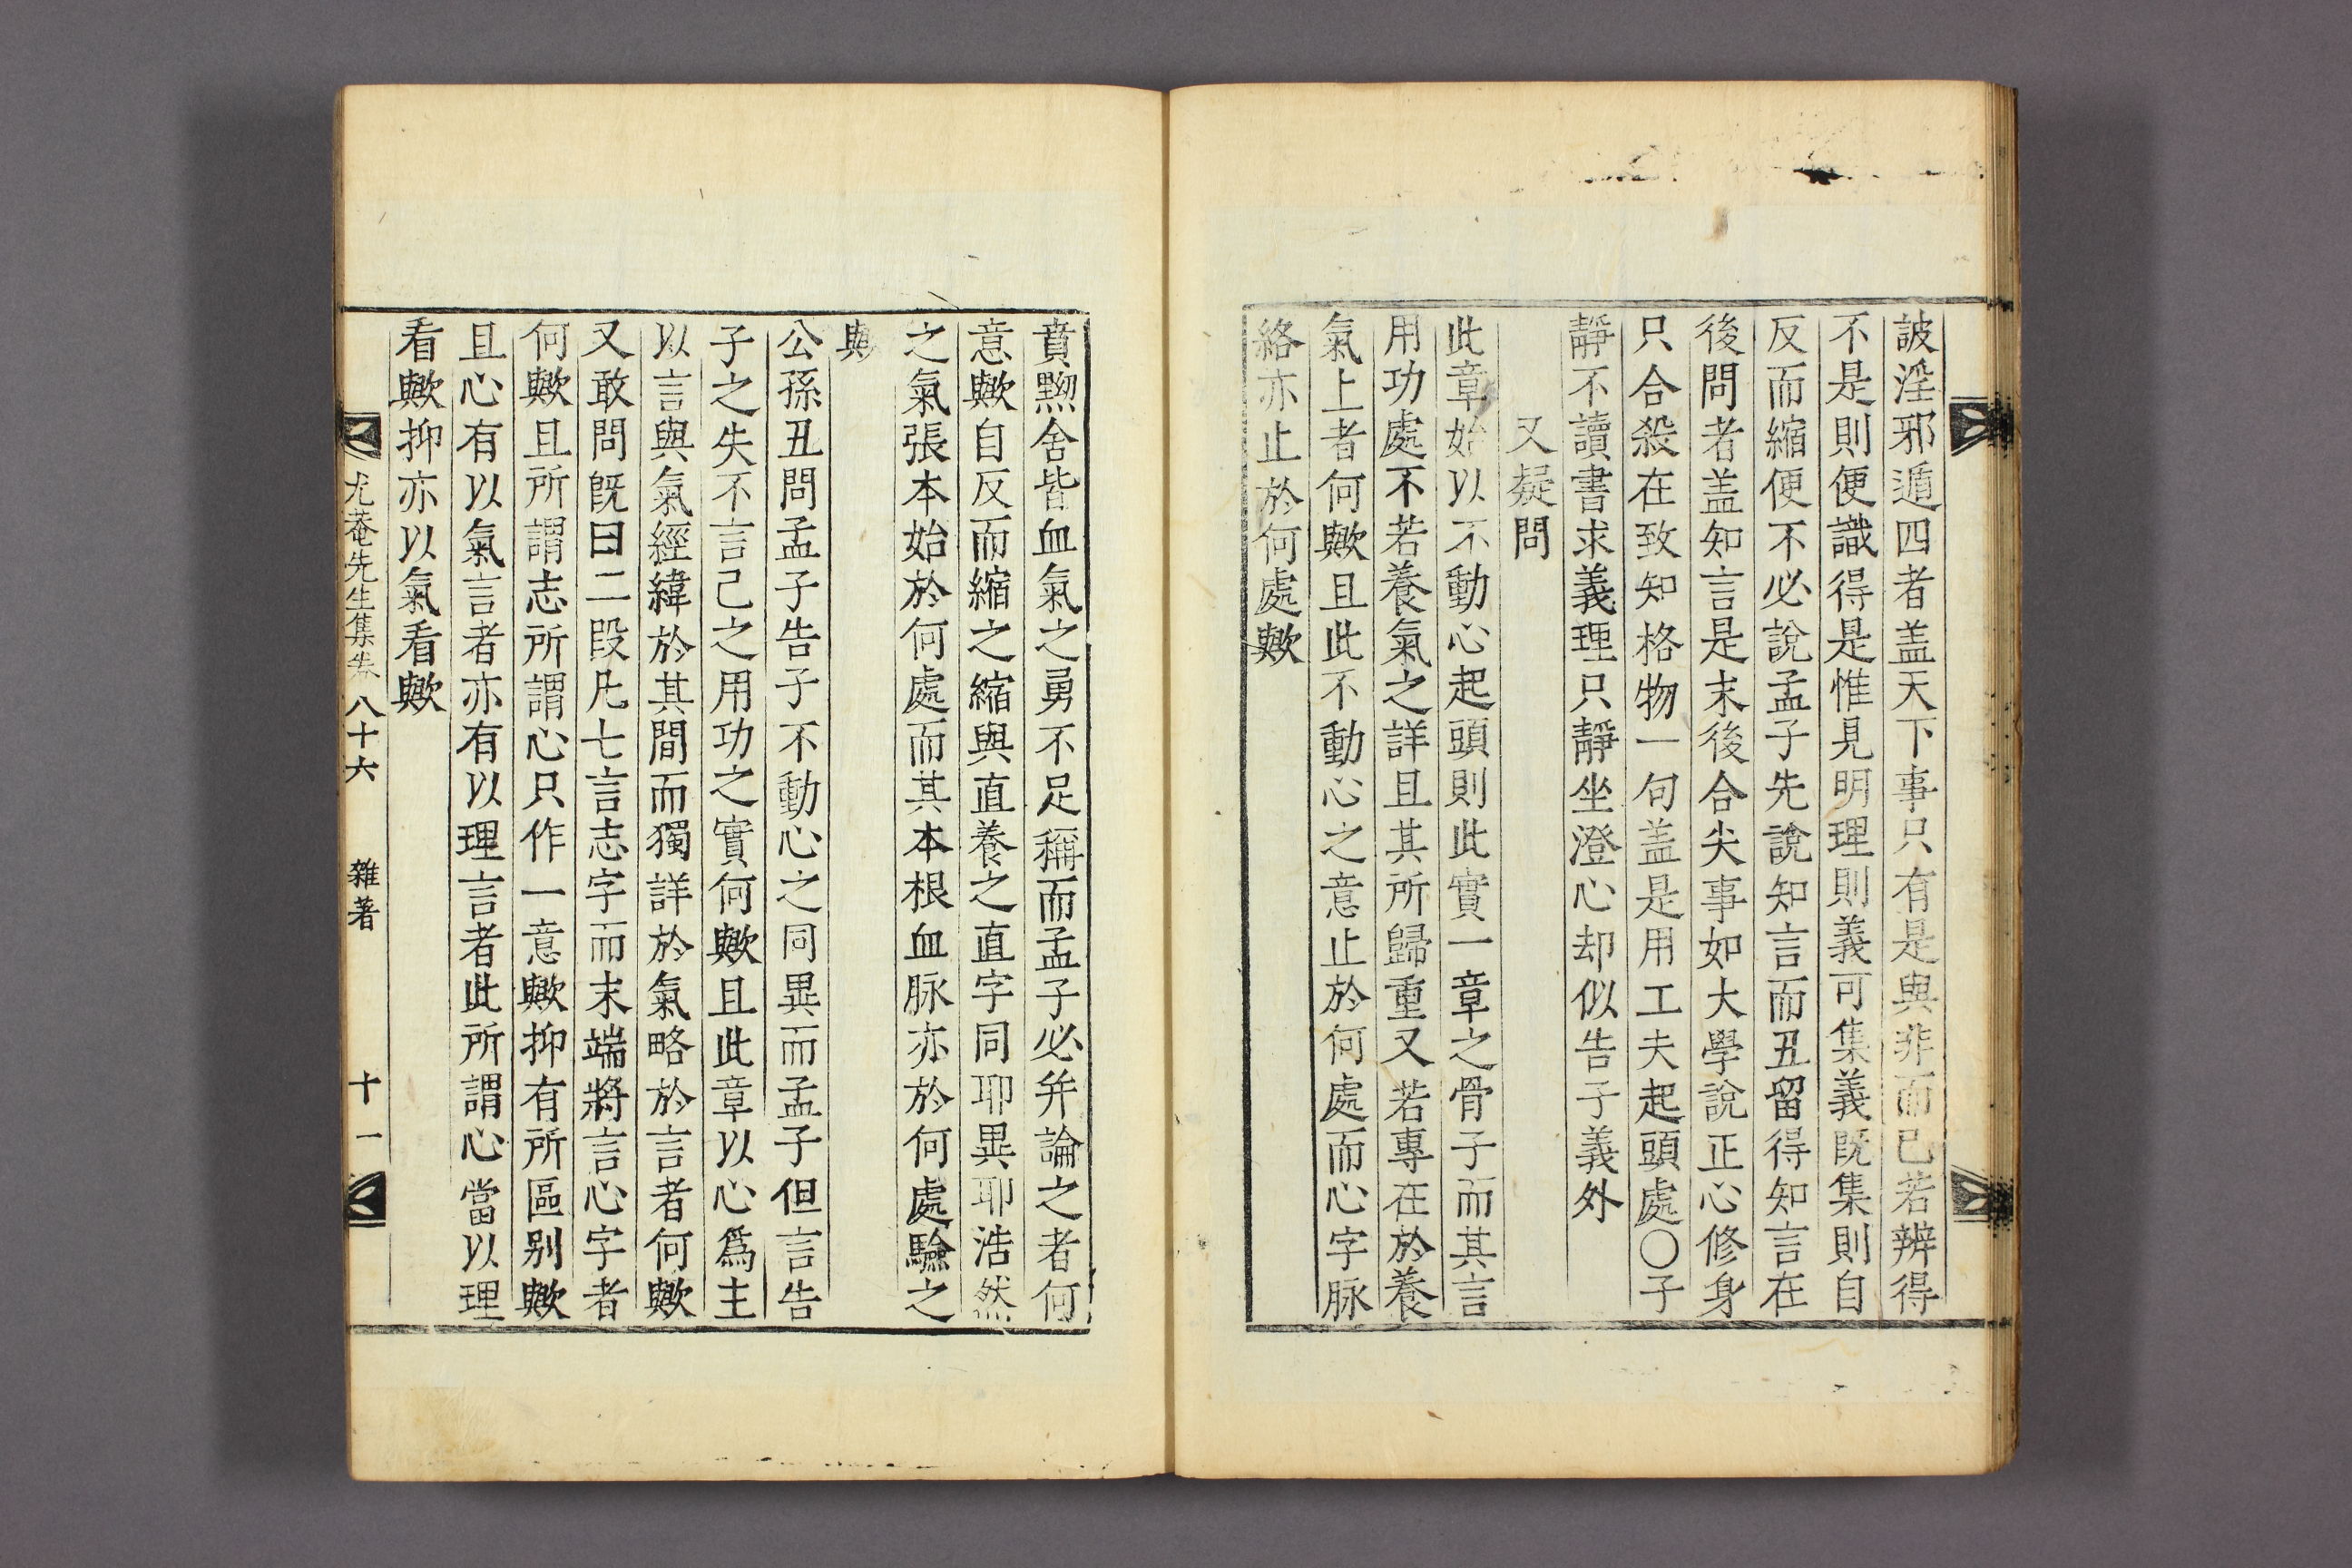 詖淫邪遁四者盖天下事只有是與非而已若辨得
不是則便識得是惟見明理則義可集義既集則自
反而縮便不必說孟子先說知言而丑留得知言在
後問者盖知言是末後合尖事如大學說正心修身
只合殺在致知格物一句盖是用工夫起頭處〇子
靜不讀書求義理只靜坐澄心却似告子義外
又疑問
此章始以不動心起頭則此實一章之骨子而其言
用功處不若養氣之詳且其所歸重又若專在於養
氣上者何歟且此不動心之意止於何處而心字脉
絡亦止於何處歟
賁黝舍皆血氣之勇不足稱而孟子必并論之者何
意歟自反而縮之縮與直養之直字同耶異耶浩然
之氣張本始於何處而其本根血脉亦於何處驗之
歟
公孫丑問孟子告子不動心之同異而孟子但言告
子之失不言己之用功之實何歟且此章以心爲主
以言與氣經緯於其間而獨詳於氣略於言者何歟
又敢問既曰二段凡七言志字而末端將言心字者
何歟且所謂志所謂心只作一意歟抑有所區别歟
且心有以氣言者亦有以理言者此所謂心當以理
看歟抑亦以氣看歟
尤菴先生集卷 八十六 雜著 十一